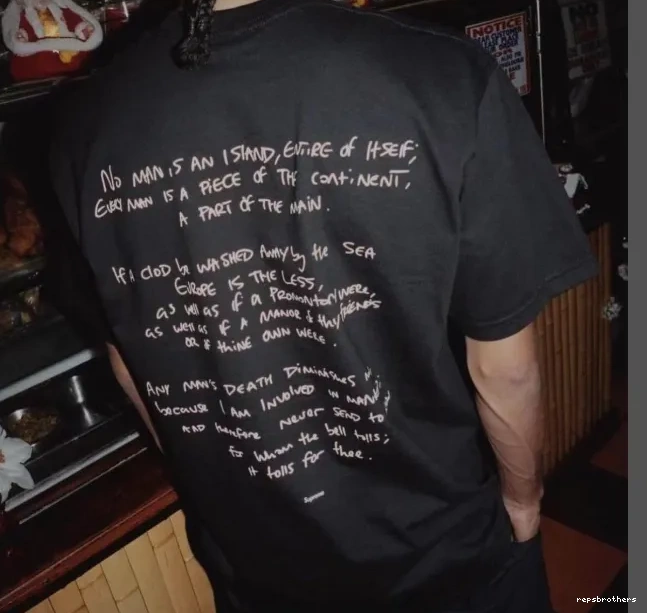 NOTICE
No MAN iS AN ISLAND, ENTiRE of ITSELF;
EVERY MAN IS A PiECE OF THE CONTiNENT,
A PART OF THE MAIN.
If A cloD be WASHED AWAY by the SEA
EUROPE IS THE LESS,
as well as if a PROMONTORY WERE,
as well as if A MANOR of thy FRiENDS
OR of thiNE OWN WERE.
ANY MAN'S DEATH DiMiNiSHES
because I AM INVOLVED iN
AND therefore NEVER SEND to
for whom the bell tolls;
it tolls for thee.
Supreme
repsbrothers